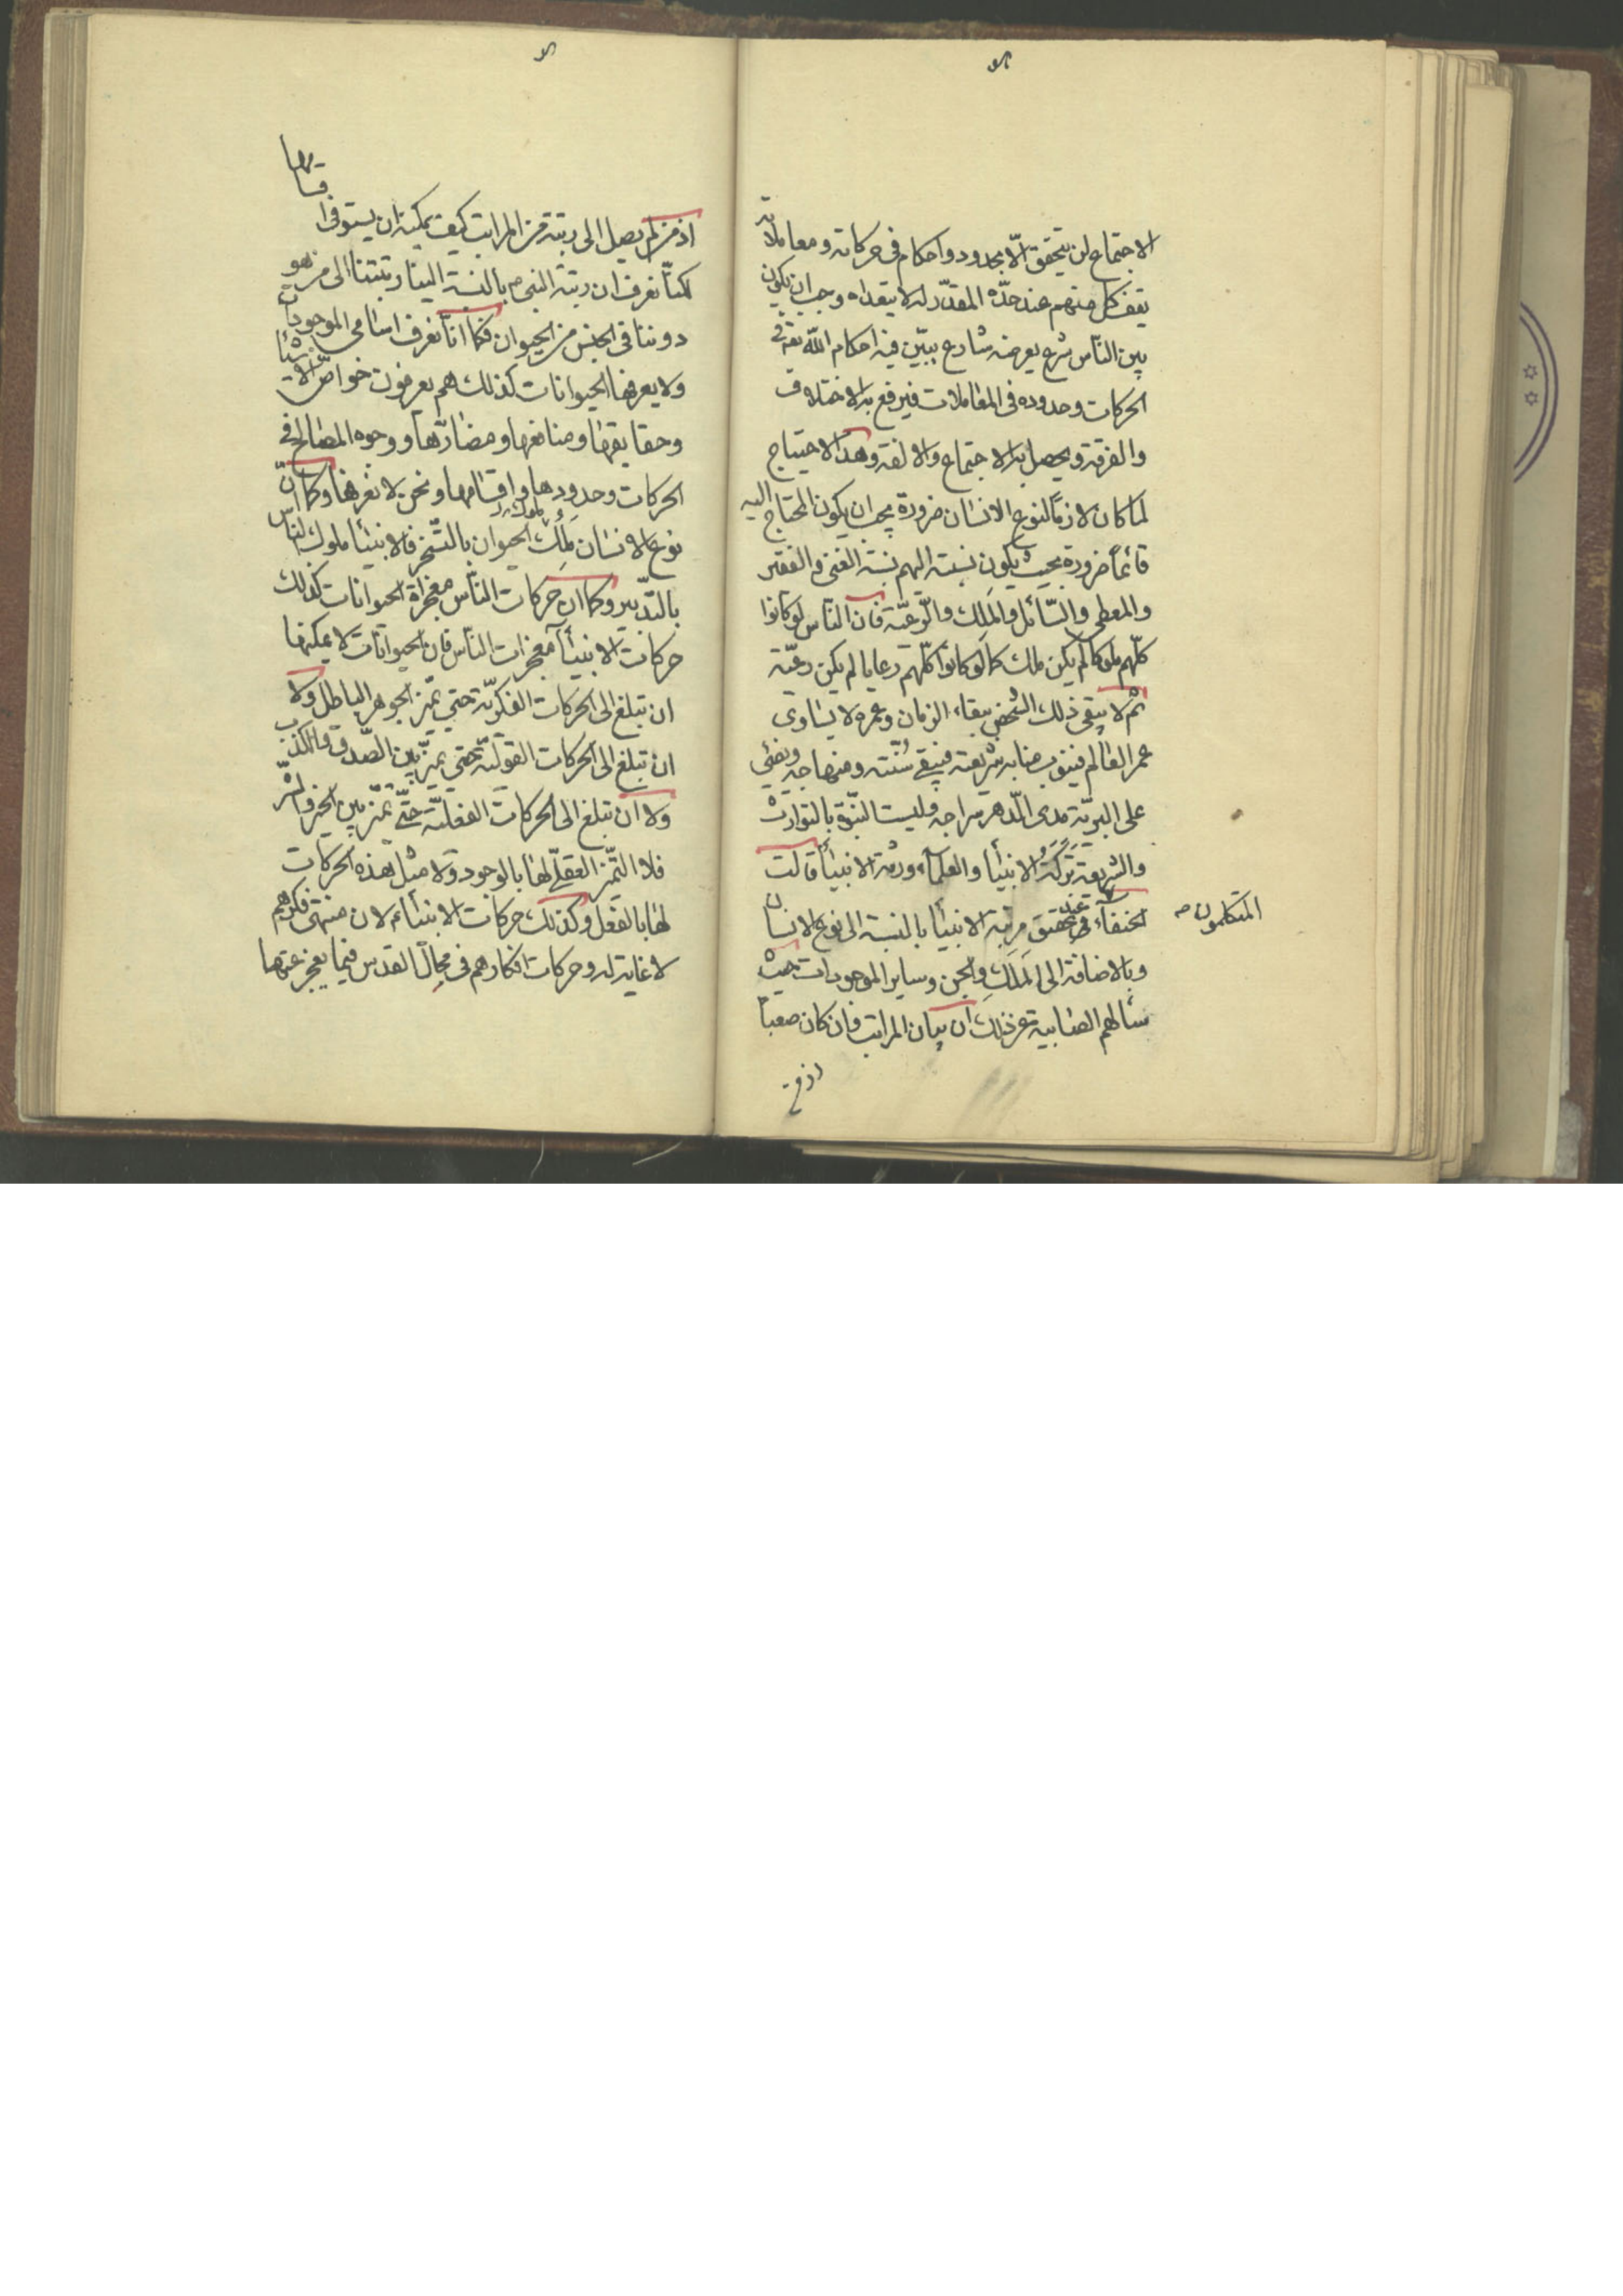 الاجتماع لن يتحقق الّا بحدود واحكام فى حركاته ومعاملاته
يقف كل منهم عند حدّه المقدّر له لا يتعداه وجب ان يكون
بين النّاس شرع يعرضه شارع يبيّن فيه احكام اللّه تعالى فى
الحركات وحدوده فى المعاملات فيرفع به الاختلاف
والفرقة ويحصل به الاجتماع والالفة وهذا الاحتياج
لما كان لازمًا لنوع الانسان ضرورة يجب ان يكون المحتاج اليه
قائمًا ضرورة بحيث يكون نسبته اليهم نسبة الغنى والفقير
والمعطى والسّائل والمَلِك والرّعيّة فان النّاس لو كانوا
كلّهم ملوكا لم يكن ملك كما لو كانوا كلّهم رعايا لم يكن رعيّة
ثم لا يبقى ذلك الشخص ببقاء الزمان وعمره لا يساوى
عمر العالم فينوب منابه شريعته فيبقى سُنّته ومنهاجه ويضئى
على البريّة مدى الدّهر سراجه وليست النبّوة بالتوارث
والشريعة تَرِكَةُ الانبيأ والعلمآء ورثة الانبيأ قالت
المتكلمون
الحنفآء فى تحقيق مرتبة الانبيأ بالنسبة الى نوع الانسان
وبالاضافة الى المَلَكِ والجن وساير الموجودات حيث
سألهم الصابية عن ذلك ان بيان المراتب وان كان صعبًا
اذ من لم يصل الى رتبة من المراتب كيف يمكنه ان يستوفى اقسامها
لكنّا نعرف ان رتبة النبى بالنسبة الينا رتبتنا الى من هو
دوننا فى الجنس من الحيوان فكما انّا نعرف اسامى الموجودات
ولا يعرفها الحيوانات كذلك هم يعرفون خواصّ الاشيأ
وحقايقها ومنافعها ومضارّها ووجوه المصالح فى
الحركات وحدودها واقسامها ونحن لا نعرفها وكما انّ
نوع الانسان مَلِكُ الحيوان بالتسّخير فالانبيأ ملوك النّاس
بالتدّبير وكما ان حركات النّاس معجزاة الحيوانات كذلك
حركات الانبيأ معجزات النّاس فان الحيوانات لا يمكنها
ان تبلغ الى الحركات الفكريّة حتى تميّز الجوهر الباطل ولا
ان تبلغ الى الحركات القوليّة حتى تميّز بين الصّدق والكذب
ولا ان تبلغ الى الحركات الفعليّة حتّى تميّز بين الخير والشّر
فلا التمّيز العقلّى لها بالوجود ولا مثل هذه الحركات
لها بالفعل وكذلك حركات الانبيآء لان منتهى فكرهم
لا غاية له وحركات افكارهم فى مجال القدس فيما يعجز عنها